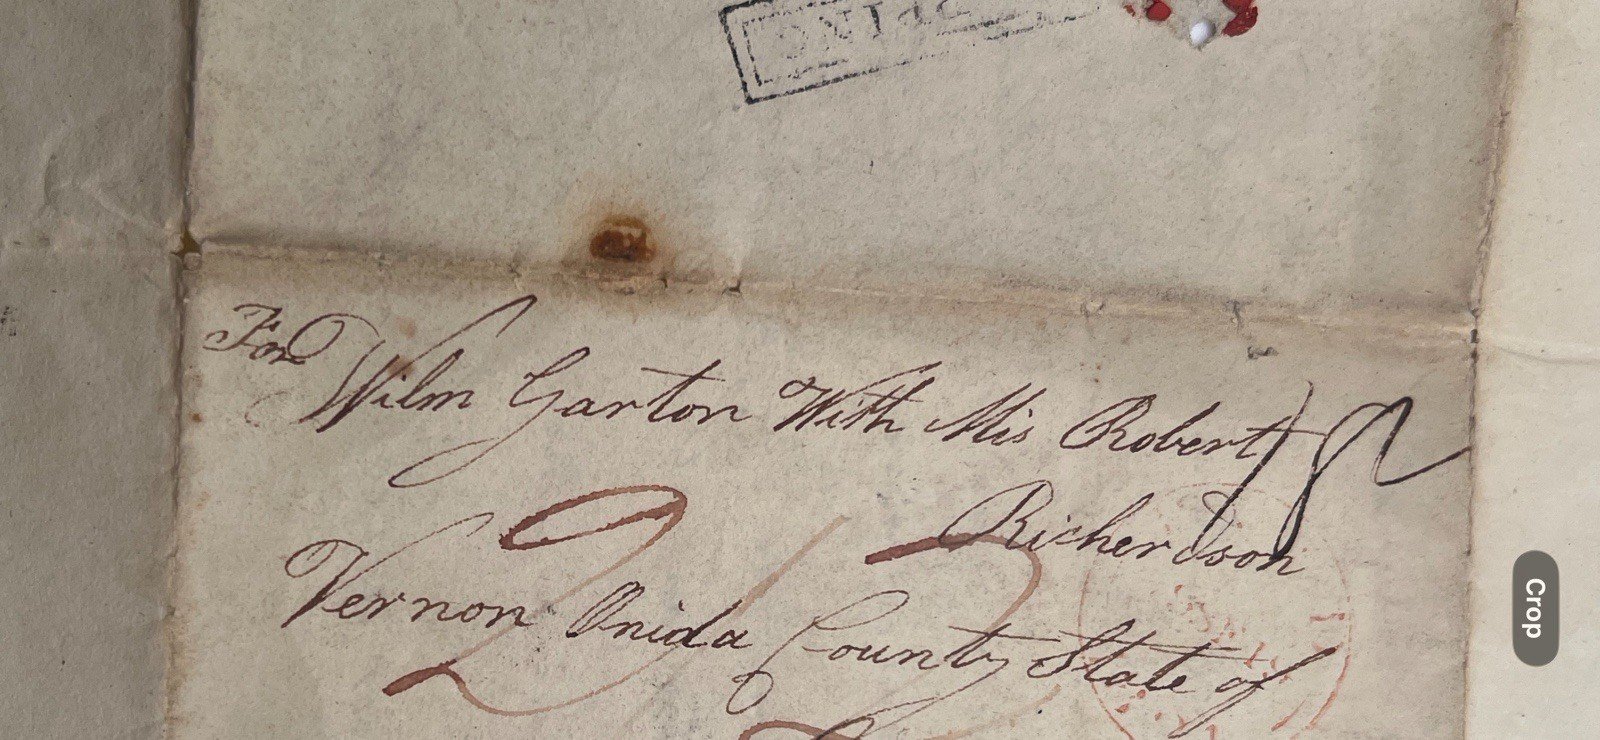 For
Wilm Garton With Mis Robert
Richerdson
Vernon Onida County State of
Crop